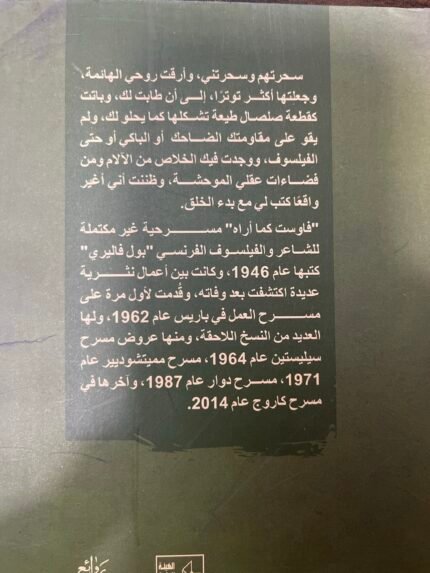 سحرتهم وسحرتني، وأرقت روحي الهائمة،
وجعلتها أكثر توترًا، إلى أن طابت لك، وباتت
كقطعة صلصال طيعة تشكلها كما يحلو لك، ولم
يقو على مقاومتك الضاحك أو الباكي أو حتى
الفيلسوف، ووجدت فيك الخلاص من الآلام ومن
فضاءات عقلي الموحشة، وظننت أني أغير
واقعًا كتب لي مع بدء الخلق.
"فاوست كما أراه" مسرحية غير مكتملة
للشاعر والفيلسوف الفرنسي "بول فاليري"
كتبها عام 1946، وكانت بين أعمال نثرية
عديدة اكتشفت بعد وفاته، وقُدمت لأول مرة على
مسرح العمل في باريس عام 1962، ولها
العديد من النسخ اللاحقة، ومنها عروض مسرح
سيليستين عام 1964، مسرح مميتشوديير عام
1971، مسرح دوار عام 1987، وآخرها في
مسرح كاروج عام 2014.
روائع
الهيئة